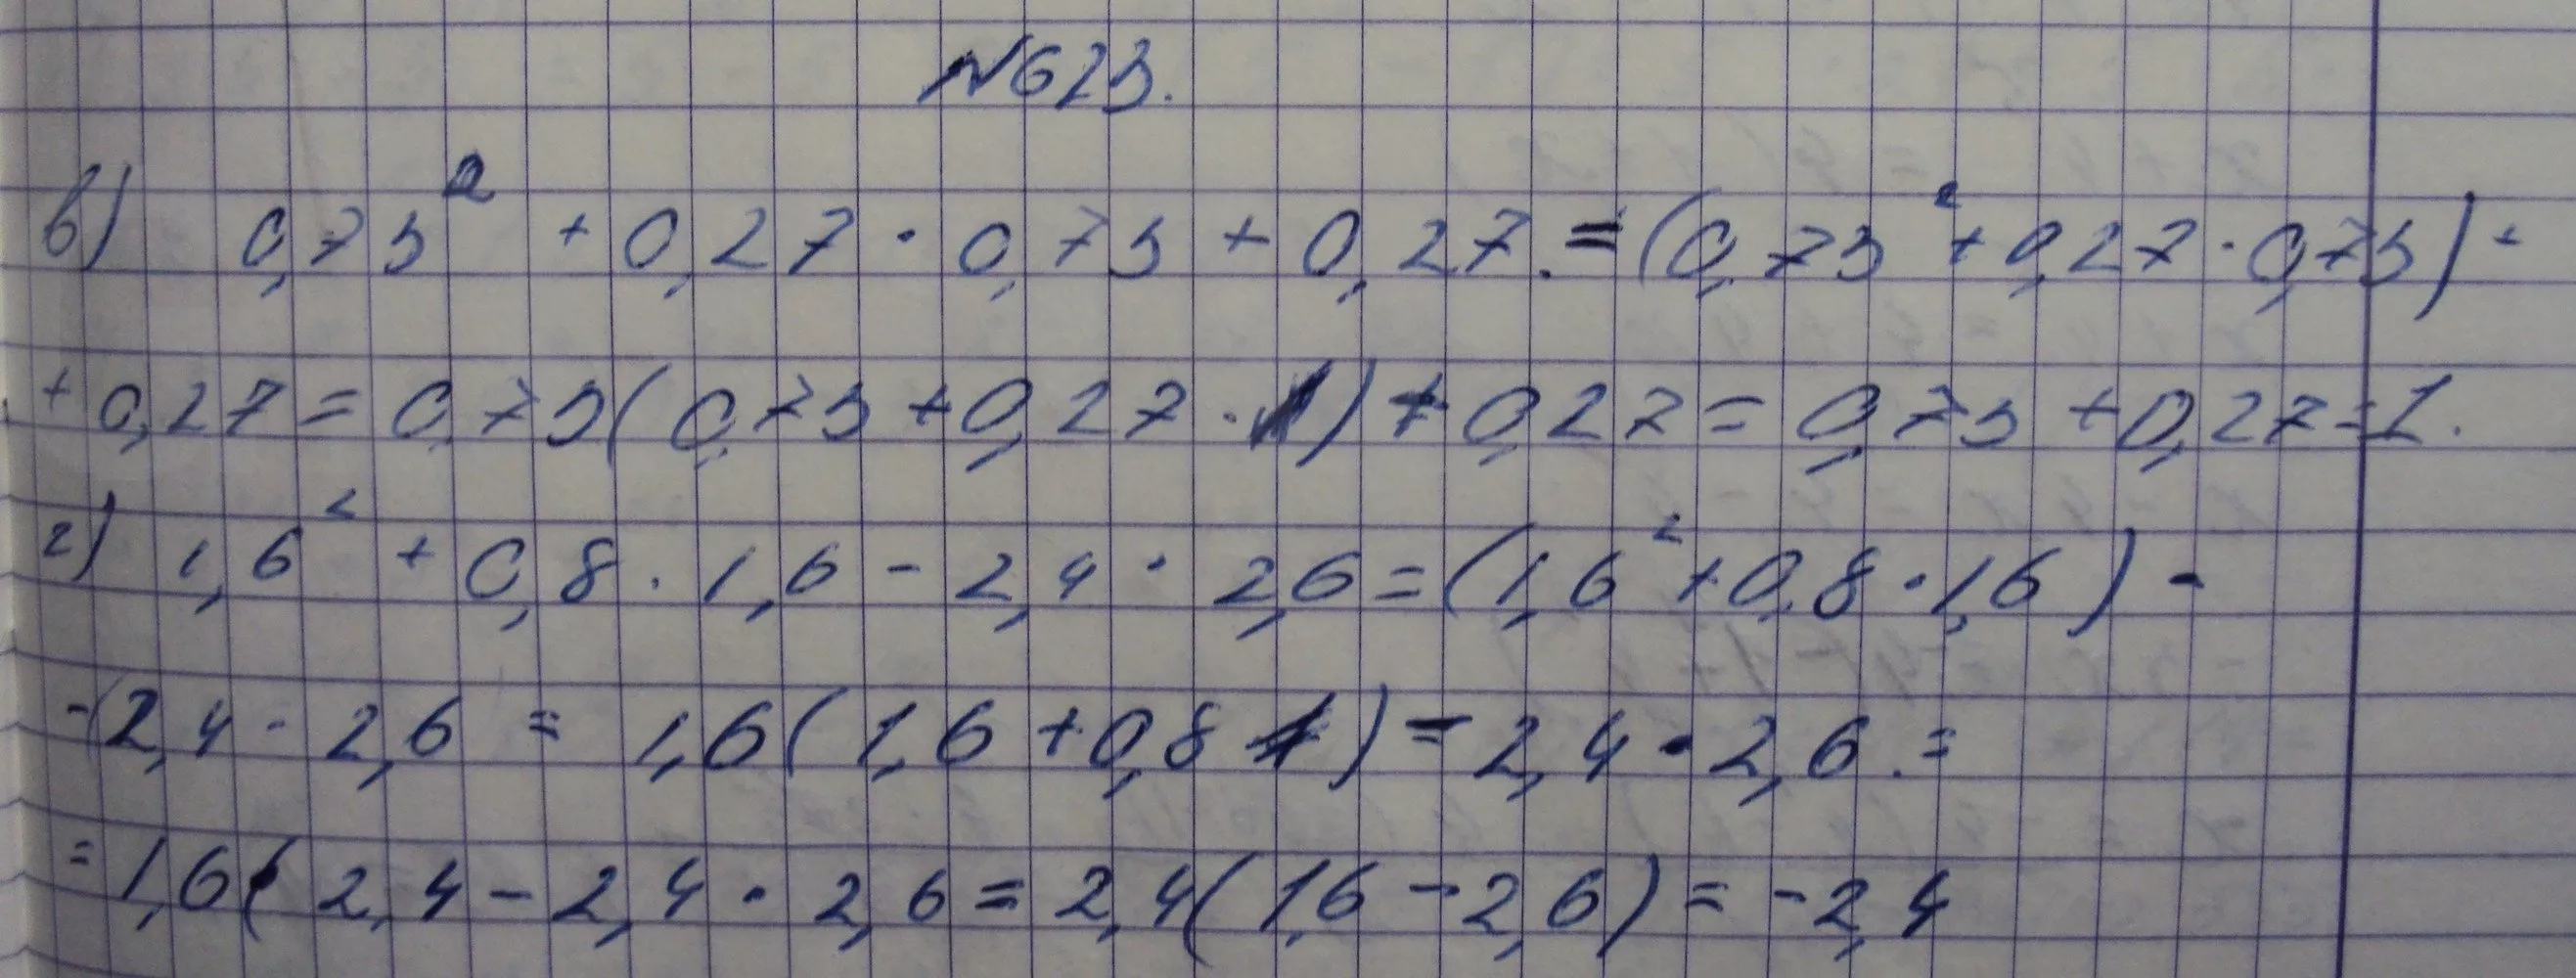 №623.
в) 0,73² + 0,27 · 0,73 + 0,27. = (0,73² + 0,27 · 0,73) +
+ 0,27 = 0,73(0,73 + 0,27 · 1) + 0,27 = 0,73 + 0,27 = 1.
г) 1,6² + 0,8 · 1,6 - 2,4 · 2,6 = (1,6² + 0,8 · 1,6) -
-(2,4 · 2,6 = 1,6(1,6 + 0,8) - 2,4 · 2,6. =
= 1,6(2,4 - 2,4 · 2,6 = 2,4(1,6 - 2,6) = -2,4